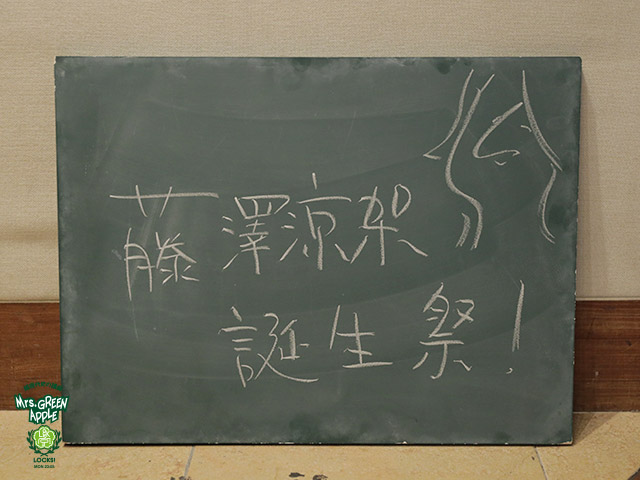 藤澤涼架
誕生祭!
Mrs. GREEN
APPLE
LOCKS!